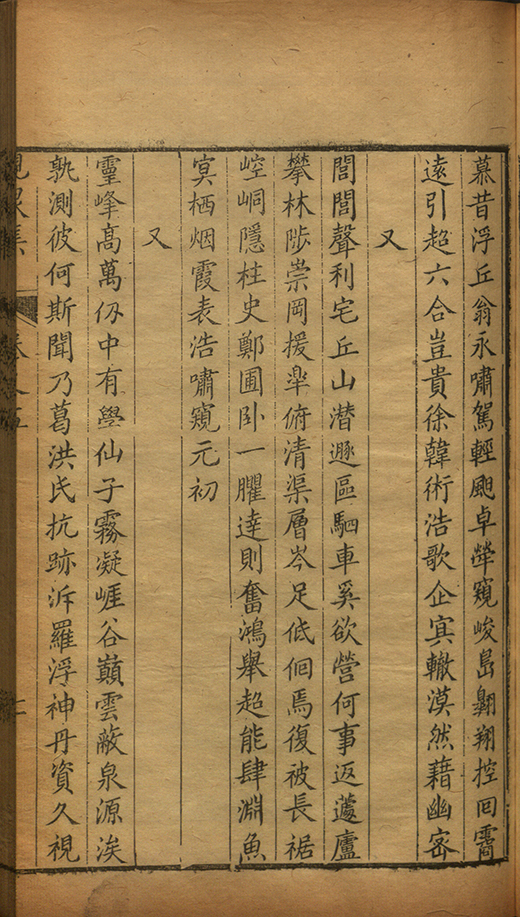 慕昔浮丘翁永嘯駕輕颸卓犖窺峻島翺翔控回霄
遠引超六合豈貴徐韓術浩歌企㝠轍漠然藉幽宻
又
閭閻聲利宅丘山潛遯區駟車奚欲營何事返蘧廬
攀林陟崇岡援垏俯清渠層岑足低佪焉復被長裾
崆峒隱柱史鄭圃卧一臞達則奮鴻舉超能肆淵魚
㝠栖烟霞表浩嘯窺元初
又
靈峰高萬仭中有學仙子霧凝崖谷巔雲蔽泉源涘
孰測彼何斯聞乃葛洪氏抗跡泝羅浮神丹資久視